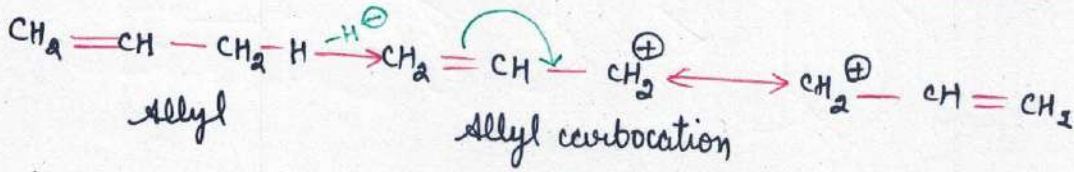 CH₂=CH — CH₂-H -H⊖→ CH₂=CH — CH₂⊕ ↔ CH₂⊕ — CH=CH₂
Allyl Allyl carbocation